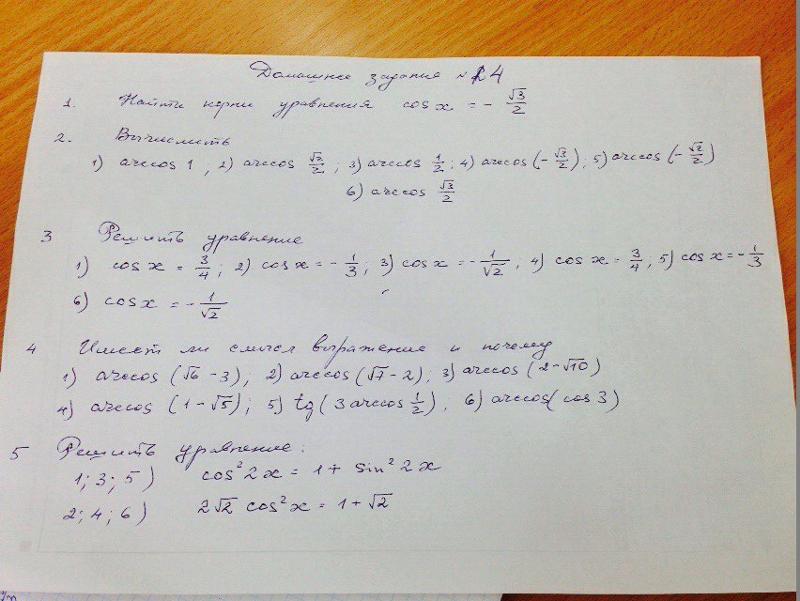 Домашнее задания № 24
1. Найти корни уравнения cos x = - √3/2
2. Вычислить
1) arccos 1, 2) arccos √2/2; 3) arccos 1/2; 4) arccos(-√3/2); 5) arccos(-√2/2)
6) arccos √3/2
3 Решить уравнение
1) cos x = 3/4; 2) cos x = -1/3; 3) cos x = -1/√2; 4) cos x = 3/4, 5) cos x = -1/3
6) cos x = -1/√2
4 Имеет ли смысл выражение и почему
1) arccos (√6 - 3), 2) arccos (√7 - 2), 3) arccos (2 - √10)
4) arccos (1 - √5); 5) tg (3 arccos 1/2), 6) arccos( cos 3)
5 Решить уравнение:
1; 3; 5) cos² 2x = 1 + sin² 2x
2; 4; 6) 2√2 cos² x = 1 + √2